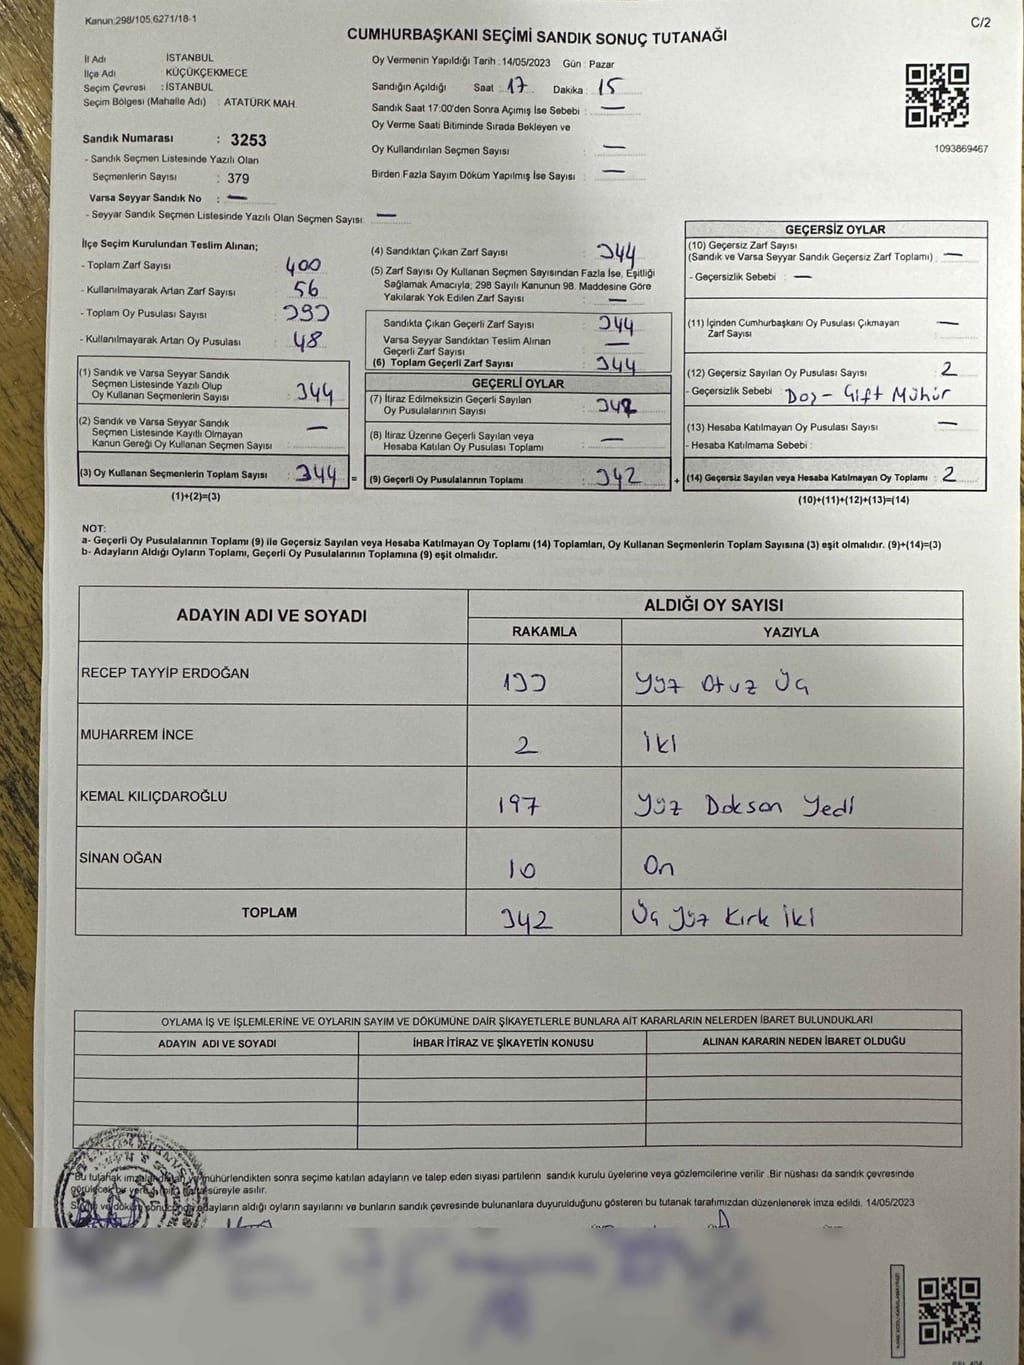 Kanun:298/105,6271/18-1
C/2
CUMHURBAŞKANI SEÇİMİ SANDIK SONUÇ TUTANAĞI
İl Adı İSTANBUL
İlçe Adı KÜÇÜKÇEKMECE
Seçim Çevresi : İSTANBUL
Seçim Bölgesi (Mahalle Adı) : ATATÜRK MAH.
Sandık Numarası : 3253
- Sandık Seçmen Listesinde Yazılı Olan
Seçmenlerin Sayısı : 379
Varsa Seyyar Sandık No : —
- Seyyar Sandık Seçmen Listesinde Yazılı Olan Seçmen Sayısı: —
Oy Vermenin Yapıldığı Tarih : 14/05/2023 Gün : Pazar
Sandığın Açıldığı Saat : 17 Dakika : 15
Sandık Saat 17:00'den Sonra Açımış İse Sebebi : —
Oy Verme Saati Bitiminde Sırada Bekleyen ve
Oy Kullandırılan Seçmen Sayısı : —
Birden Fazla Sayım Döküm Yapılmış İse Sayısı : —
1093869467
İlçe Seçim Kurulundan Teslim Alınan;
- Toplam Zarf Sayısı : 400
- Kullanılmayarak Artan Zarf Sayısı : 56
- Toplam Oy Pusulası Sayısı : 393
- Kullanılmayarak Artan Oy Pusulası : 48
(1) Sandık ve Varsa Seyyar Sandık
Seçmen Listesinde Yazılı Olup
Oy Kullanan Seçmenlerin Sayısı : 344
(2) Sandık ve Varsa Seyyar Sandık
Seçmen Listesinde Kayıtlı Olmayan
Kanun Gereği Oy Kullanan Seçmen Sayısı : —
(3) Oy Kullanan Seçmenlerin Toplam Sayısı : 344 =
(1)+(2)=(3)
(4) Sandıktan Çıkan Zarf Sayısı : 344
(5) Zarf Sayısı Oy Kullanan Seçmen Sayısından Fazla İse, Eşitliği
Sağlamak Amacıyla; 298 Sayılı Kanunun 98. Maddesine Göre
Yakılarak Yok Edilen Zarf Sayısı : —
Sandıkta Çıkan Geçerli Zarf Sayısı : 344
Varsa Seyyar Sandıktan Teslim Alınan
Geçerli Zarf Sayısı : —
(6) Toplam Geçerli Zarf Sayısı : 344
GEÇERLİ OYLAR
(7) İtiraz Edilmeksizin Geçerli Sayılan
Oy Pusulalarının Sayısı : 342
(8) İtiraz Üzerine Geçerli Sayılan veya
Hesaba Katılan Oy Pusulası Toplamı : —
(9) Geçerli Oy Pusulalarının Toplamı : 342 +
GEÇERSİZ OYLAR
(10) Geçersiz Zarf Sayısı
(Sandık ve Varsa Seyyar Sandık Geçersiz Zarf Toplamı) : —
- Geçersizlik Sebebi : —
(11) İçinden Cumhurbaşkanı Oy Pusulası Çıkmayan
Zarf Sayısı : —
(12) Geçersiz Sayılan Oy Pusulası Sayısı : 2
- Geçersizlik Sebebi : Boş - Çift Mühür
(13) Hesaba Katılmayan Oy Pusulası Sayısı : —
- Hesaba Katılmama Sebebi :
(14) Geçersiz Sayılan veya Hesaba Katılmayan Oy Toplamı : 2
(10)+(11)+(12)+(13)=(14)
NOT:
a- Geçerli Oy Pusulalarının Toplamı (9) ile Geçersiz Sayılan veya Hesaba Katılmayan Oy Toplamı (14) Toplamları, Oy Kullanan Seçmenlerin Toplam Sayısına (3) eşit olmalıdır. (9)+(14)=(3)
b- Adayların Aldığı Oyların Toplamı, Geçerli Oy Pusulalarının Toplamına (9) eşit olmalıdır.
ADAYIN ADI VE SOYADI
ALDIĞI OY SAYISI
RAKAMLA YAZIYLA
RECEP TAYYİP ERDOĞAN 133 Yüz Otuz Üç
MUHARREM İNCE 2 İki
KEMAL KILIÇDAROĞLU 197 Yüz Doksan Yedi
SİNAN OĞAN 10 On
TOPLAM 342 Üç Yüz Kırk İki
OYLAMA İŞ VE İŞLEMLERİNE VE OYLARIN SAYIM VE DÖKÜMÜNE DAİR ŞİKAYETLERLE BUNLARA AİT KARARLARIN NELERDEN İBARET BULUNDUKLARI
ADAYIN ADI VE SOYADI İHBAR İTİRAZ VE ŞİKAYETİN KONUSU ALINAN KARARIN NEDEN İBARET OLDUĞU
Bu tutanak mühürlendikten sonra seçime katılan adayların ve talep eden siyasi partilerin sandık kurulu üyelerine veya gözlemcilerine verilir. Bir nüshası da sandık çevresinde
süreyle asılır.
adayların aldığı oyların sayılarını ve bunların sandık çevresinde bulunanlara duyurulduğunu gösteren bu tutanak tarafımızdan düzenlenerek imza edildi. 14/05/2023